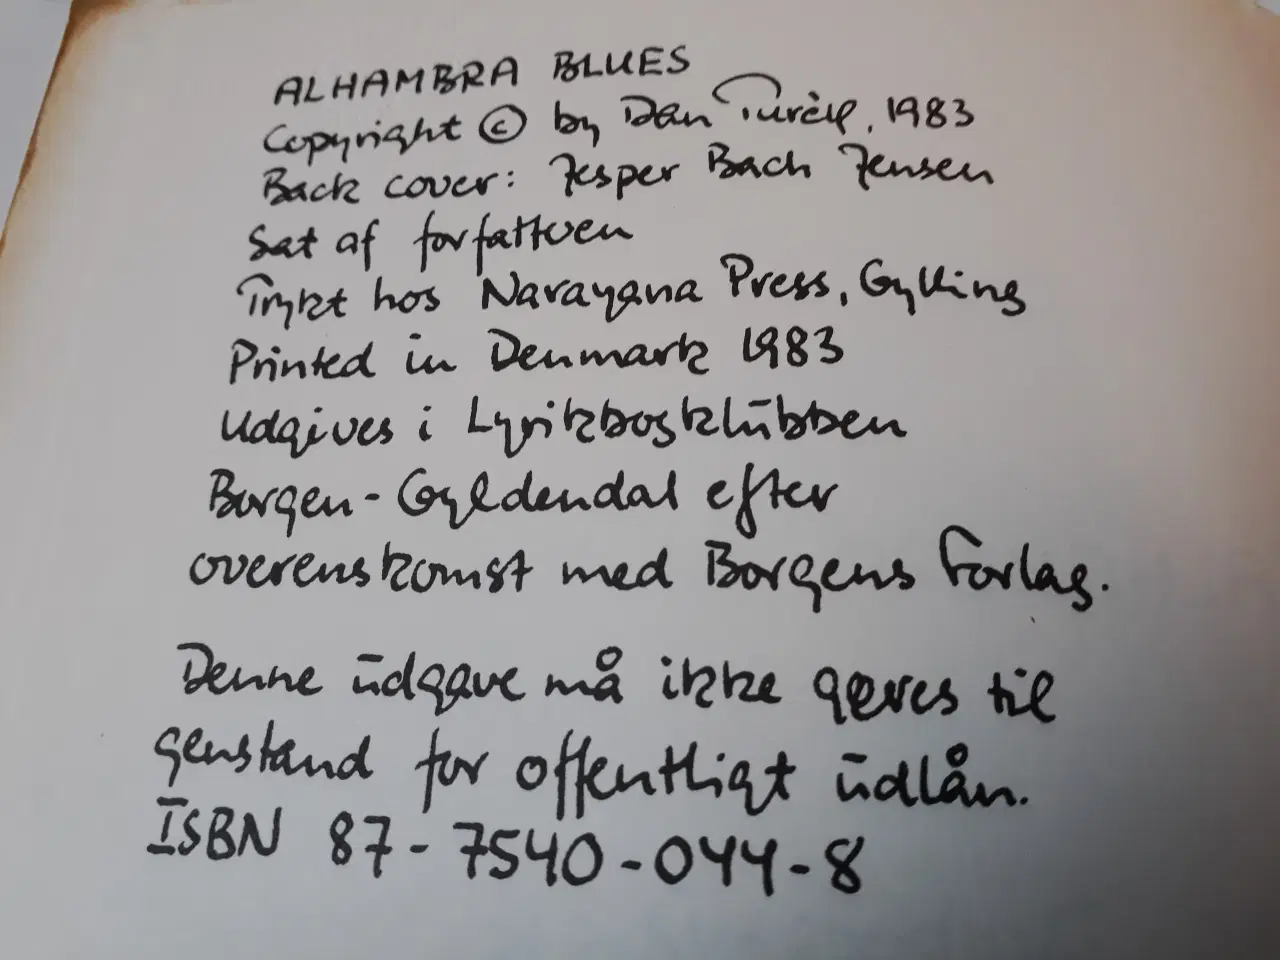 ALHAMBRA BLUES
Copyright © by Dan Turèll, 1983
Back cover: Jesper Bach Jensen
Sat af forfatteren
Trykt hos Narayana Press, Gylling
Printed in Denmark 1983
Udgives i Lyrikbogklubben
Borgen-Gyldendal efter
overenskomst med Borgens Forlag.
Denne udgave må ikke gøres til
genstand for offentligt udlån.
ISBN 87-7540-044-8